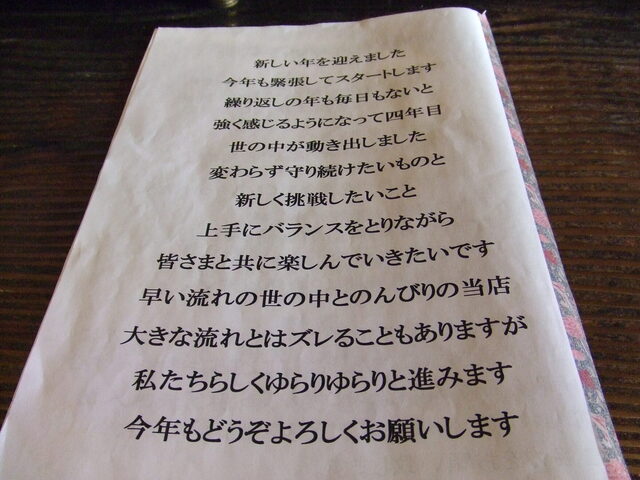 新しい年を迎えました
今年も緊張してスタートします
繰り返しの年も毎日もないと
強く感じるようになって四年目
世の中が動き出しました
変わらず守り続けたいものと
新しく挑戦したいこと
上手にバランスをとりながら
皆さまと共に楽しんでいきたいです
早い流れの世の中とのんびりの当店
大きな流れとはズレることもありますが
私たちらしくゆらりゆらりと進みます
今年もどうぞよろしくお願いします